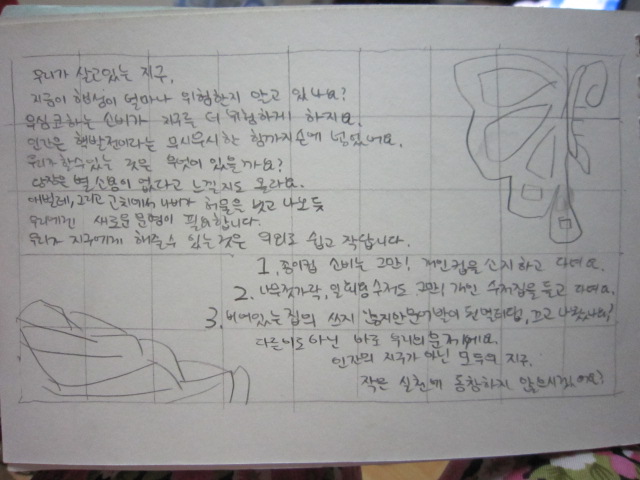 우리가 살고있는 지구.
지금이 행성이 얼마나 위험한지 알고 있나요?
무심코하는 소비가 지구를 더 위험하게 하지요.
인간은 핵발전이라는 무시무시한 함까지손에 넣었어요.
우리가할수있는 것은 무엇이 있을까요?
당장은 별 소용이 없다고 느낄지도 몰라요.
애벌레, 그리고 고치에서 나비가 허물을 벗고 나오듯
우리에겐 새로운 문명이 필요합니다.
우리가 지구에게 해줄수 있는것은 의외로 쉽고 작답니다.
1. 종이컵 소비는 그만! 개인컵을 소지하고 다녀요.
2. 나무젓가락, 일회용수저도 그만! 개인 수저집을 들고 다녀요.
3. 비어있는집의 쓰지 않지만 끄고 나왔나요?
다른이도 아닌 바로 우리의 문제예요.
인간의 지구가 아닌 모두의 지구.
작은 실천에 동참하지 않으시겠어요?